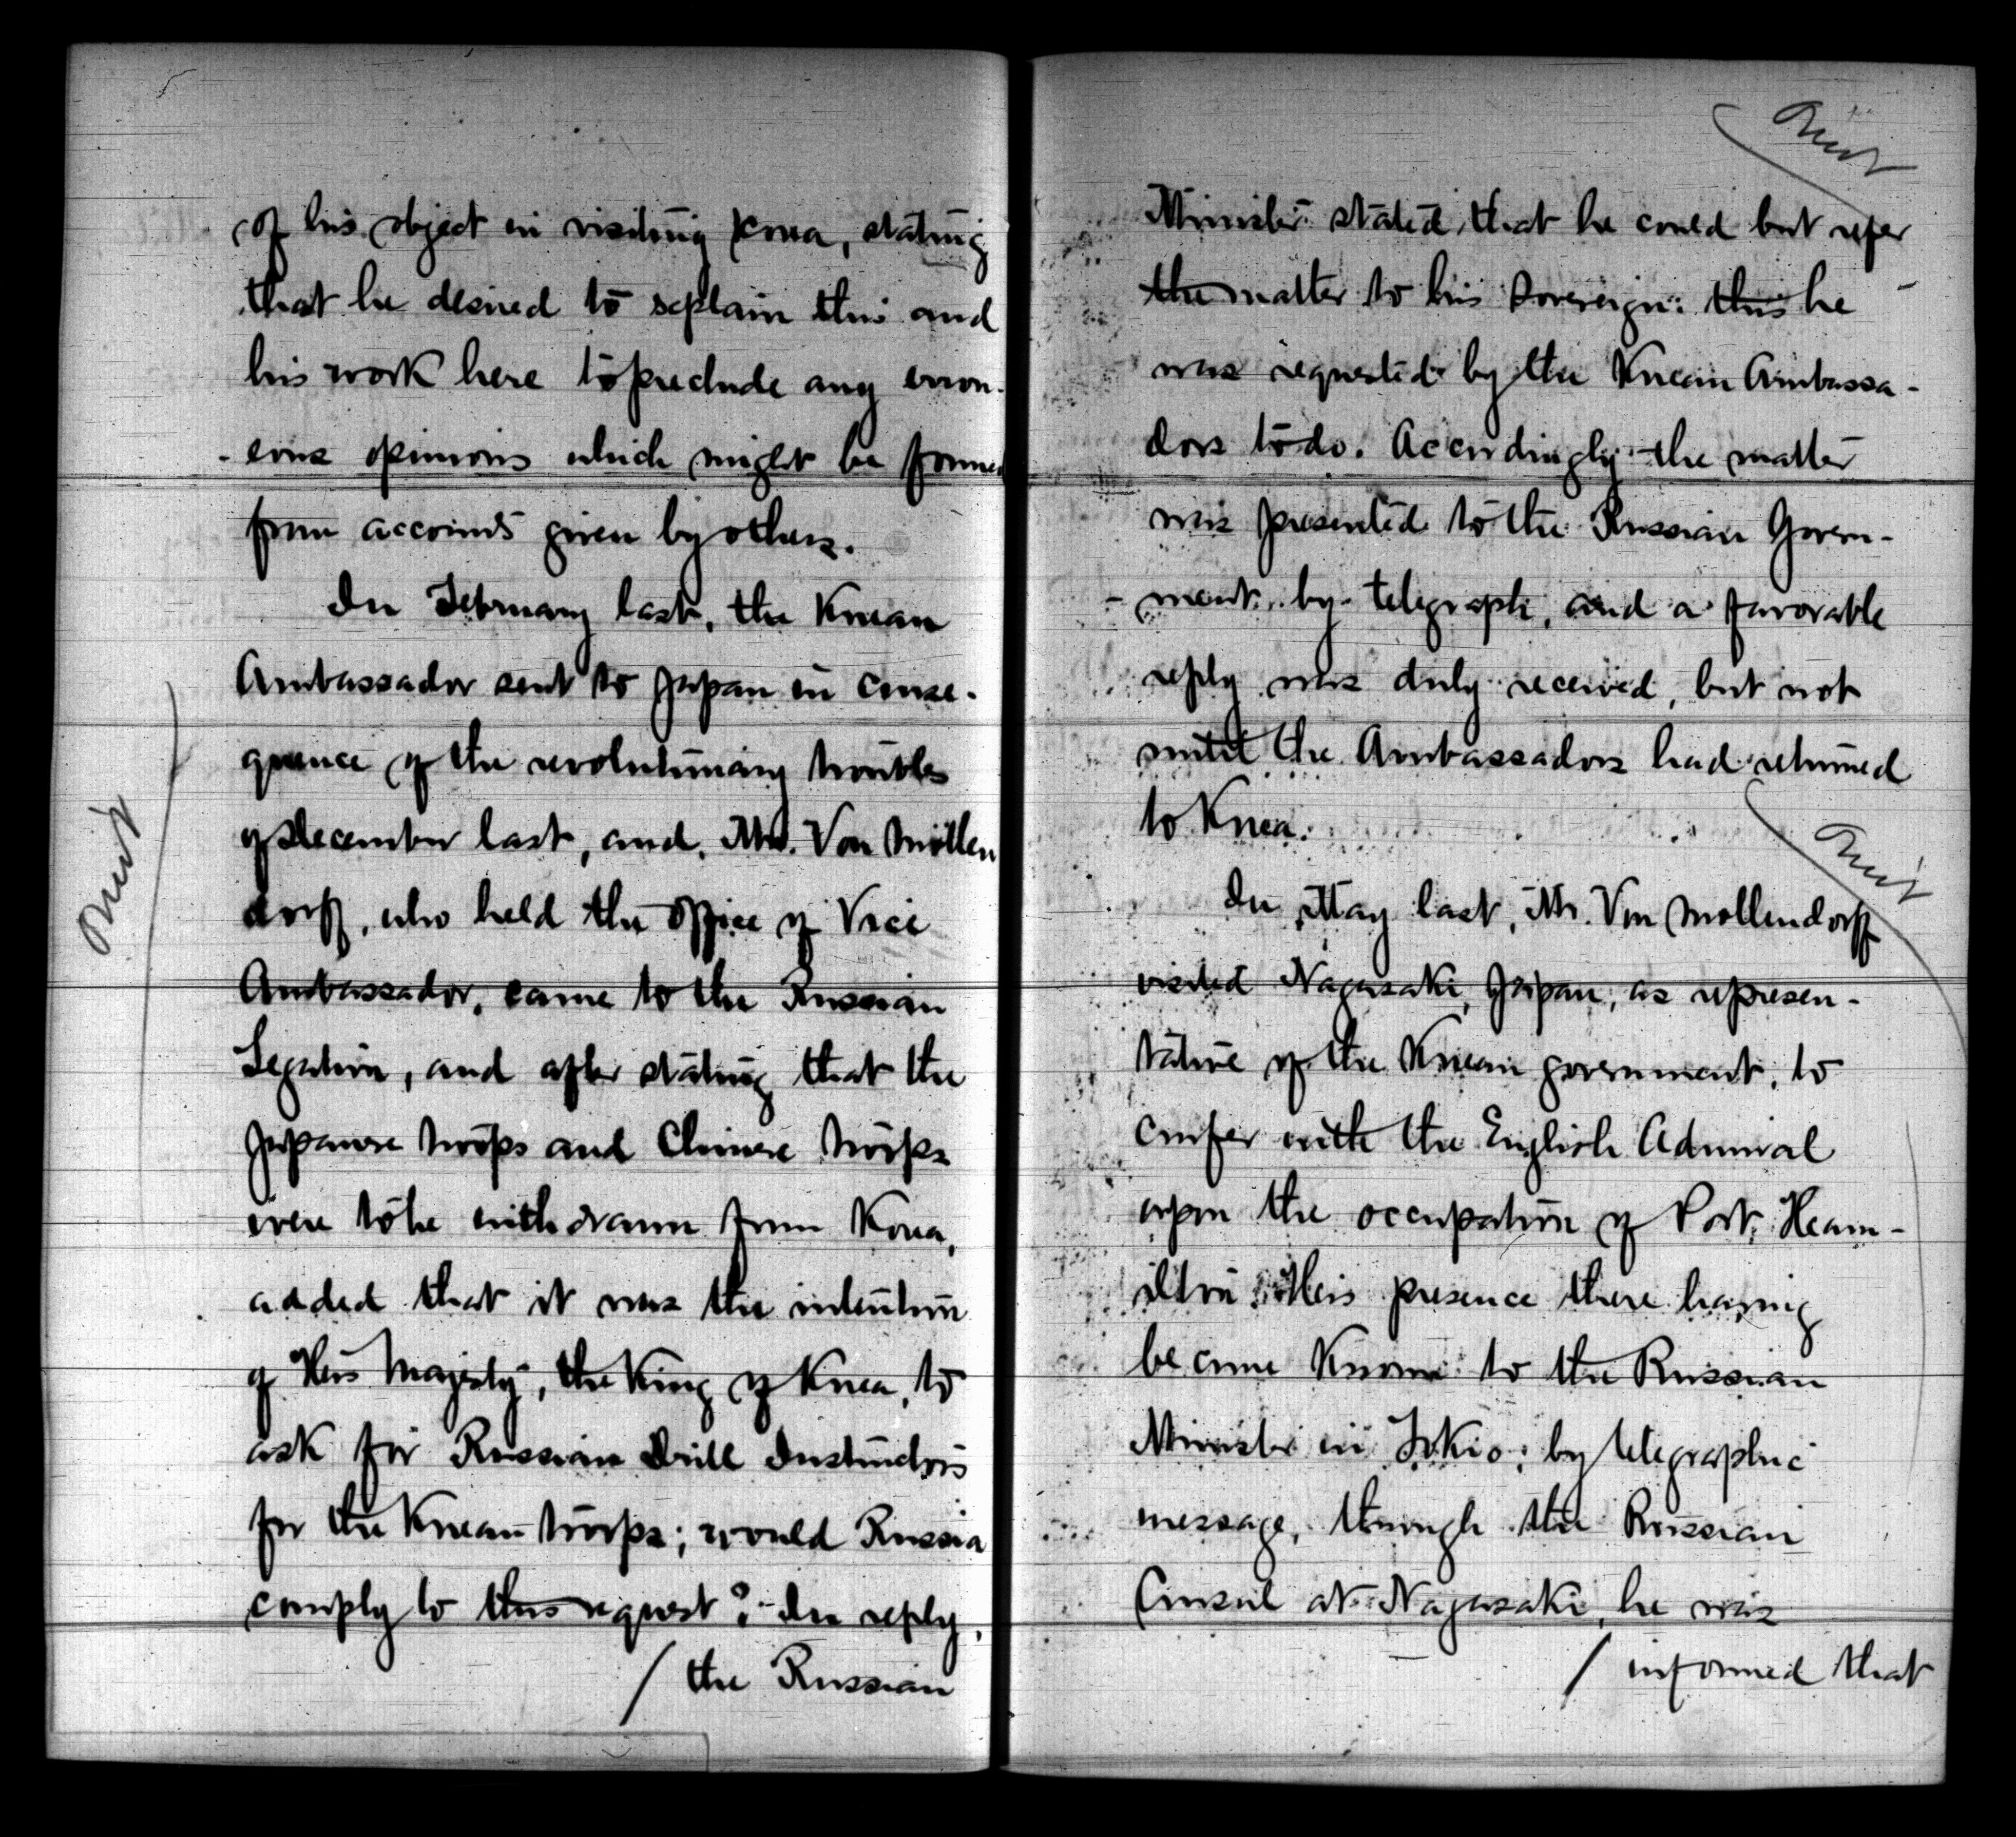 of his object in visiting Korea, stating
that he desired to explain this and
his work here to preclude any erron-
-eous opinions which might be formed
from accounts given by others.
In February last, the Korean
Ambassador sent to Japan in conse-
quence of the revolutionary troubles
of December last, and, Mr. Von Möllen
dorff, who held the office of Vice
Ambassador, came to the Russian
Legation, and after stating that the
Japanese troops and Chinese troops
were to be withdrawn from Korea,
added that it was the intention
of His Majesty, the King of Korea, to
ask for Russian Drill Instructors
for the Korean troops; would Russia
comply to this request? In reply,
/ the Russian
Omit
Omit
Minister stated that he could but refer
the matter to his Sovereign: this he
was requested by the Korean Ambassa-
dors to do. Accordingly the matter
was presented to the Russian Govern-
-ment, by telegraph, and a favorable
reply was duly received, but not
until the Ambassadors had returned
to Korea.
Omit
In May last, Mr. Von Mollendorff
visited Nagasaki, Japan, as represen-
tative of the Korean government, to
confer with the English Admiral
upon the occupation of Port Ham-
ilton. His presence there having
become known to the Russian
Minister in Tokio, by telegraphic
message, through the Russian
Consul at Nagasaki, he was
/ informed that